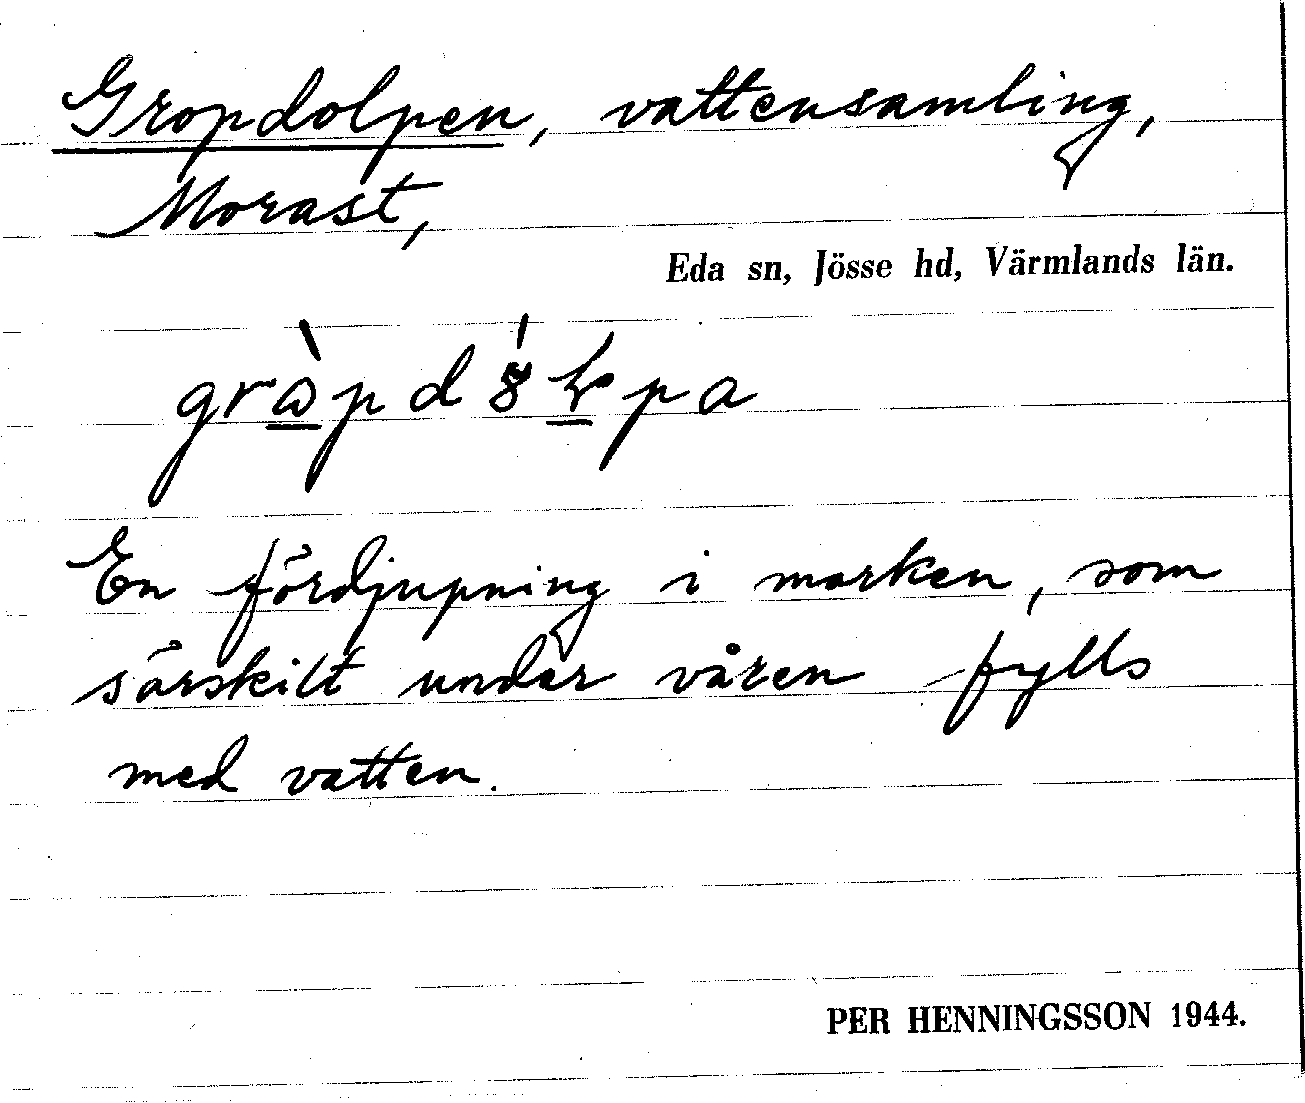 Gropdolpen, vattensamling,
Morast,
Eda sn, Jösse hd, Värmlands län.
En fördjupning i marken, som
särskilt under våren fylls
med vatten.
PER HENNINGSSON 1944.